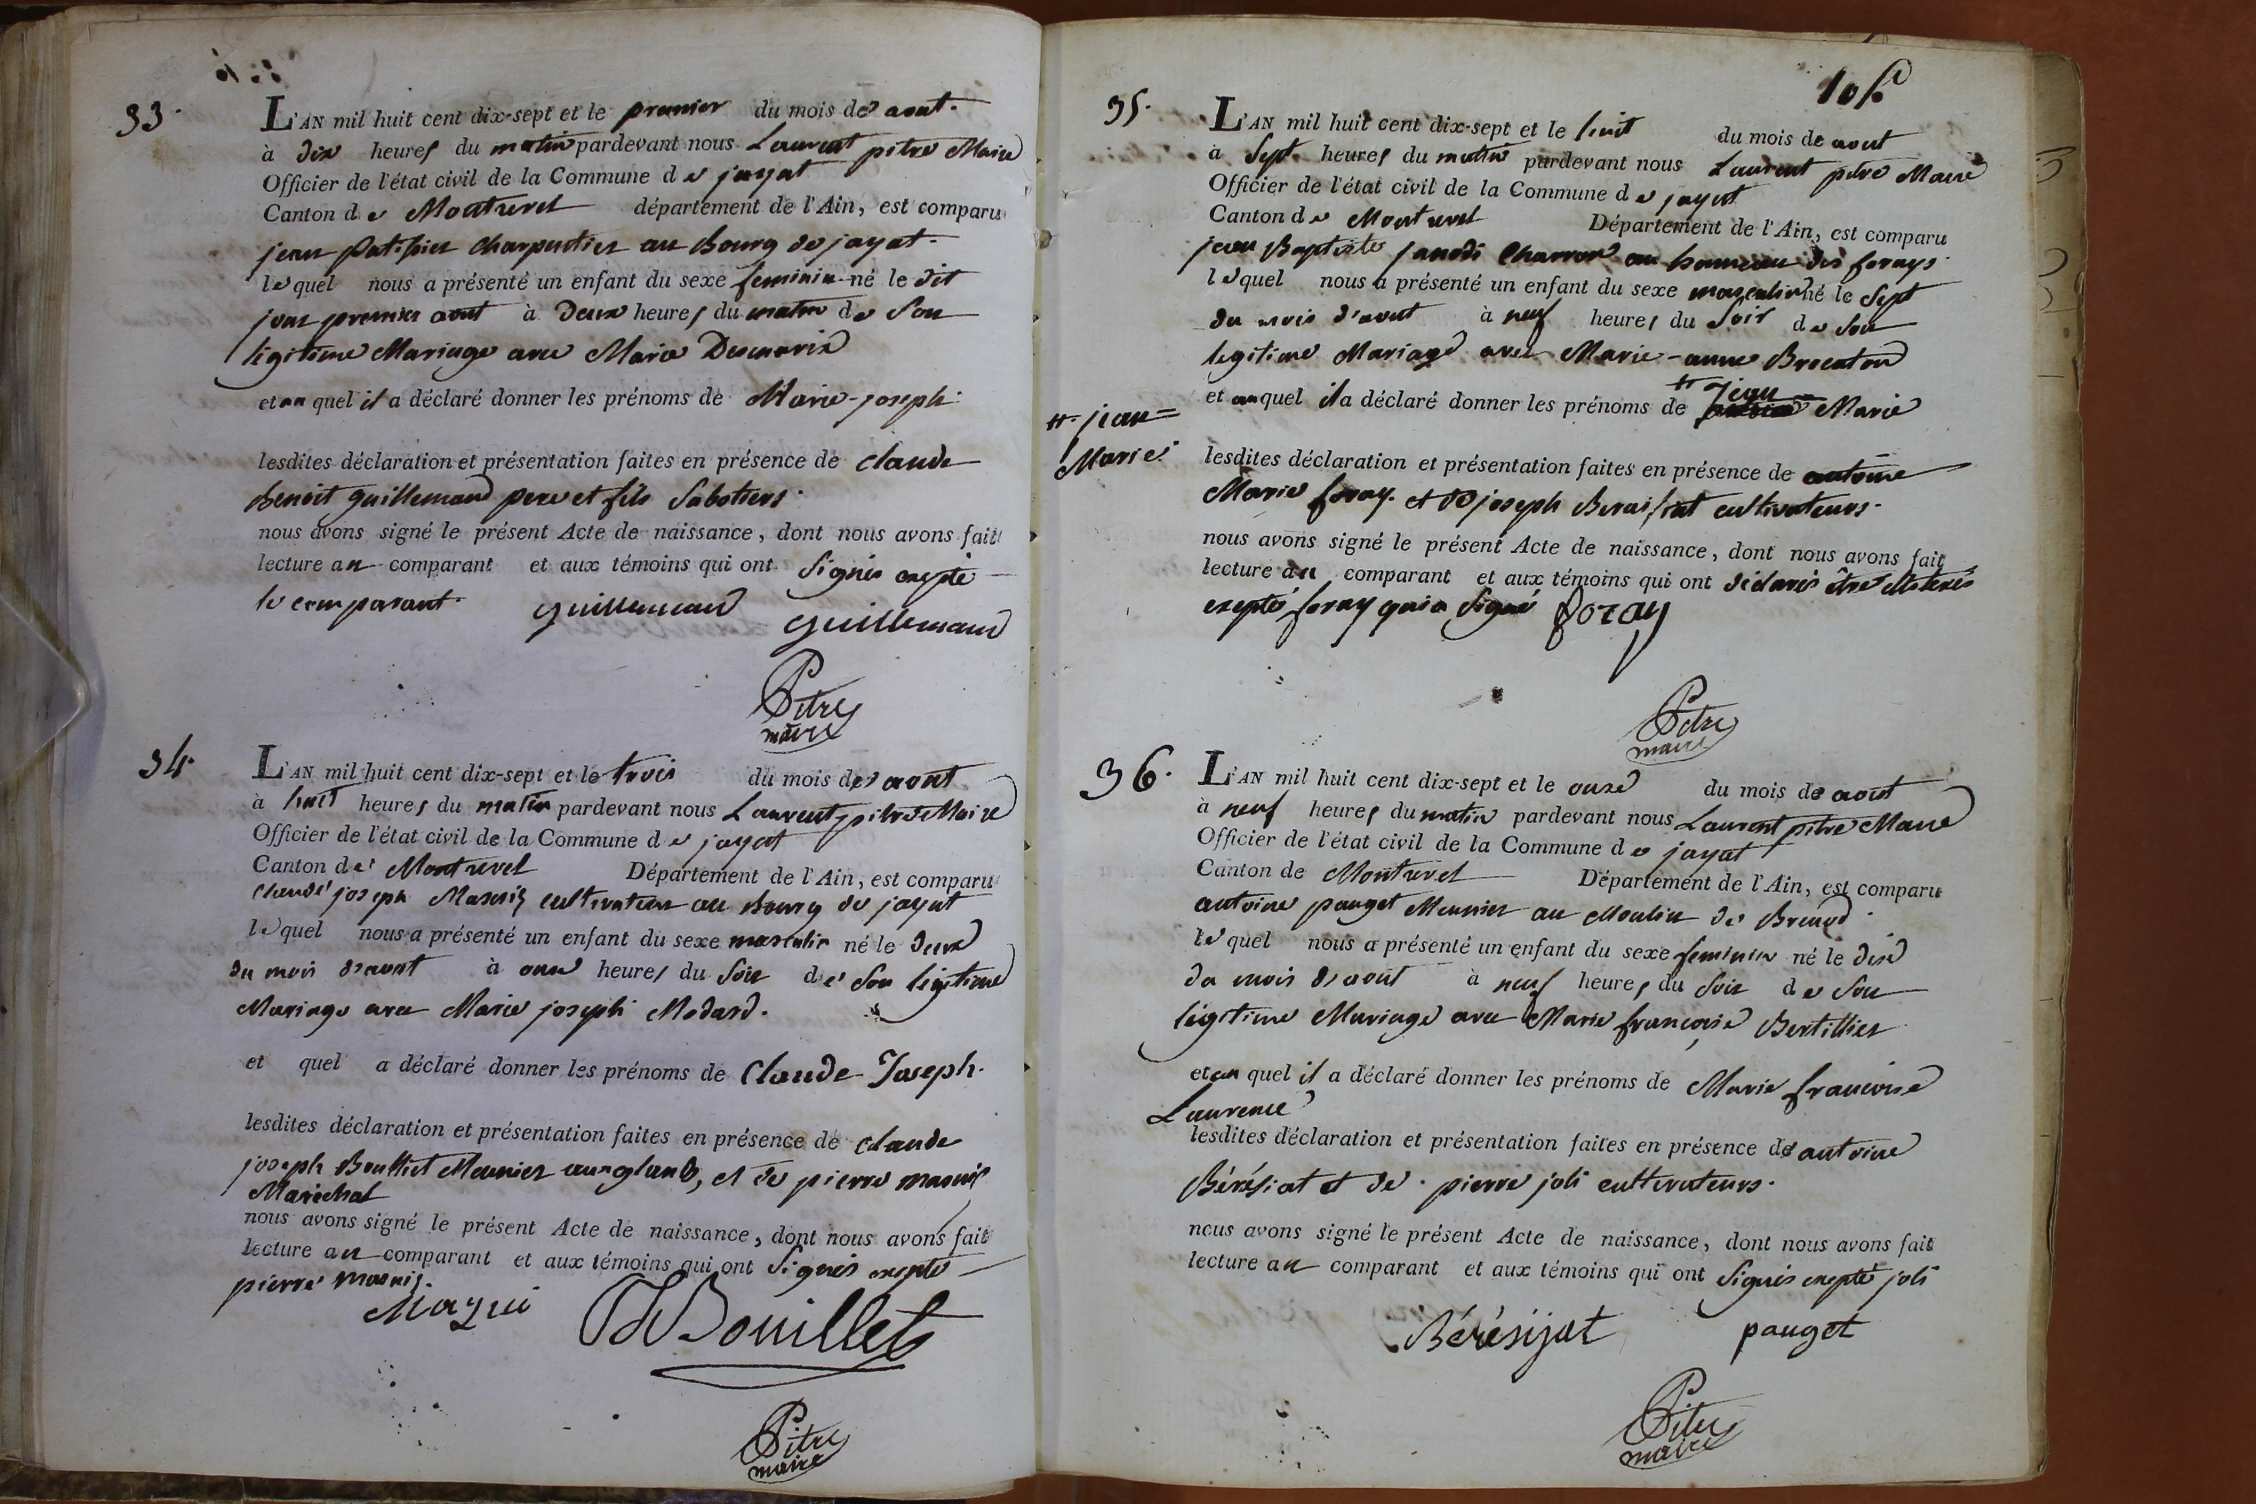 33.
L'AN mil huit cent dix-sept et le premier du mois de aout.
à dix heures du matin pardevant nous Laurent pitre Maire
Officier de l'état civil de la Commune de jayat
Canton de Montrevel département de l'Ain, est comparu
jean charpentier au Bourg de jayat.
lequel nous a présenté un enfant du sexe feminin né le dit
jour premier aout à deux heures du matin de Son
legitime Mariage avec Marie
et au quel il a déclaré donner les prénoms de Marie-joseph.
lesdites déclaration et présentation faites en présence de claude
benoit guillemaud pere et fils Sabotiers.
nous avons signé le présent Acte de naissance, dont nous avons fait
lecture au comparant et aux témoins qui ont Signés excepté
le comparant. guillemaud
guillemaud
Pitre
maire
34.
L'AN mil huit cent dix-sept et le trois du mois de aout
à huit heures du matin pardevant nous Laurent pitre Maire
Officier de l'état civil de la Commune de jayat
Canton de Montrevel Département de l'Ain, est comparu
Claude joseph cultivateur au Bourg de jayat
lequel nous a présenté un enfant du sexe masculin né le deux
du mois d'aout à onze heures du Soir de Son legitime
Mariage avec Marie joseph Modard.
et quel a déclaré donner les prénoms de Claude Joseph.
lesdites déclaration et présentation faites en présence de claude
joseph Bouillet Meunier et de pierre
Maréchal
nous avons signé le présent Acte de naissance, dont nous avons fait
lecture au comparant et aux témoins qui ont Signés excepté
pierre
Bouillet
Pitre
maire
10
35.
L'AN mil huit cent dix-sept et le huit du mois de aout
à Sept heures du matin pardevant nous Laurent pitre Maire
Officier de l'état civil de la Commune de jayat
Canton de Montrevel Département de l'Ain, est comparu
jean Baptiste janodi Charron au hameau des forays.
lequel nous a présenté un enfant du sexe masculin né le Sept
du mois d'aout à neuf heures du Soir de Son
legitime Mariage avec Marie-anne
et auquel il a déclaré donner les prénoms de Jean Marie
jean=
Marie
lesdites déclaration et présentation faites en présence de antoine
Marie foray. et de joseph cultivateurs.
nous avons signé le présent Acte de naissance, dont nous avons fait
lecture au comparant et aux témoins qui ont déclarés être illeterés
excepté foray qui a Signé foray
Pitre
maire
36.
L'AN mil huit cent dix-sept et le onze du mois de aout
à neuf heures du matin pardevant nous Laurent pitre Maire
Officier de l'état civil de la Commune de jayat
Canton de Montrevel Département de l'Ain, est comparu
antoine pauget Meunier au Moulin de
lequel nous a présenté un enfant du sexe feminin né le dix
du mois d'aout à neuf heures du Soir de Son
legitime Mariage avec Marie françoise Bertillier
et au quel il a déclaré donner les prénoms de Marie francoise
Laurence
lesdites déclaration et présentation faites en présence de antoine
Bérésiat et de pierre joli cultivateurs.
nous avons signé le présent Acte de naissance, dont nous avons fait
lecture au comparant et aux témoins qui ont Signés excepté joli
Bérésijat pauget
Pitre
maire